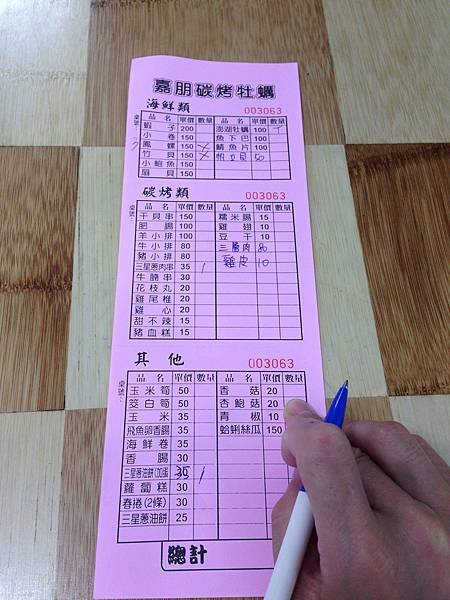 嘉朋碳烤牡蠣
海鮮類 003063
品名 單價 數量 品名 單價 數量
蝦子 200 澎湖牡蠣 100
小卷 150 魚下巴 100
鳳螺 150 鯖魚片 100
竹貝 150 帆立貝 50
小鮑魚 150
扇貝 150
碳烤類 003063
桌號:
品名 單價 數量 品名 單價 數量
干貝串 150 糯米腸 15
肥腸 100 雞翅 10
羊小排 100 豆干 10
牛小排 80 三層肉 80
豬小排 80 雞皮 10
三星蔥肉串 35 1
牛腩串 30
花枝丸 20
雞尾椎 20
雞心 20
甜不辣 15
豬血糕 15
其他 003063
桌號:
品名 單價 數量 品名 單價 數量
玉米筍 50 香菇 20
筊白筍 50 杏鮑菇 20
玉米 35 青椒 10
飛魚卵香腸 35 蛤蜊絲瓜 150
海鮮卷 35
香腸 30
三星蔥油餅(加蛋) 35 1
蘿蔔糕 30
春捲(2條) 30
三星蔥油餅 25
總計